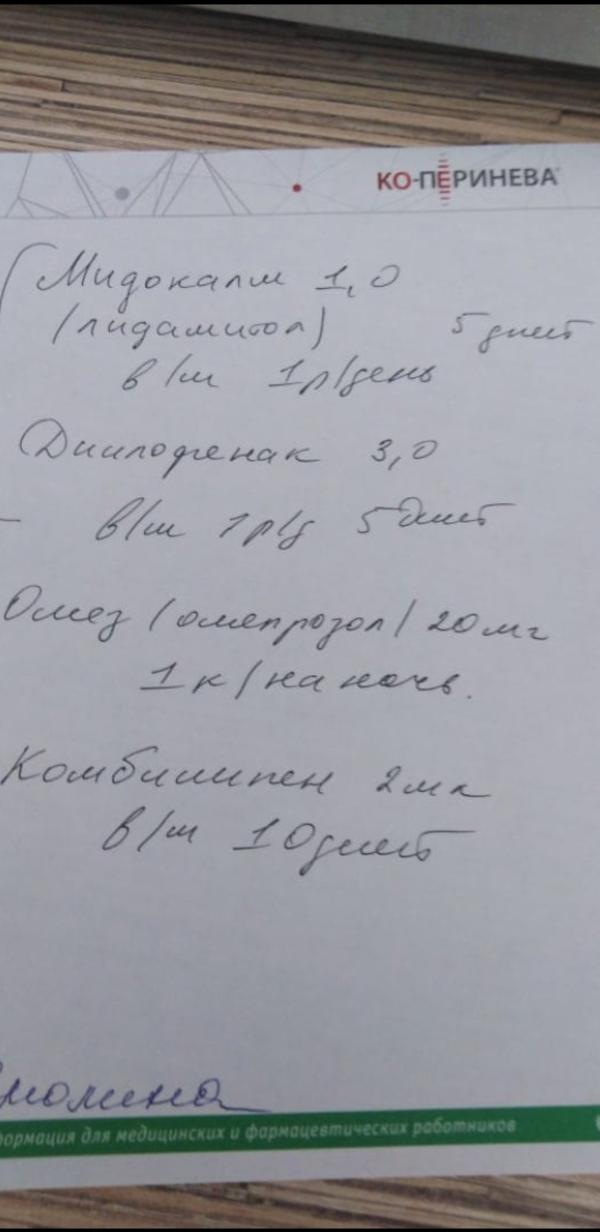 КО-ПЕРИНЕВА
Мидокалм 1,0
(лидамитол) 5 дней
в/м 1р/день
Диклофенак 3,0
в/м 1р/д 5 дней
Омез (омепрозол) 20 мг
1 к / на ночь.
Комбилипен 2 мл
в/м 10 дней
формация для медицинских и фармацевтических работников